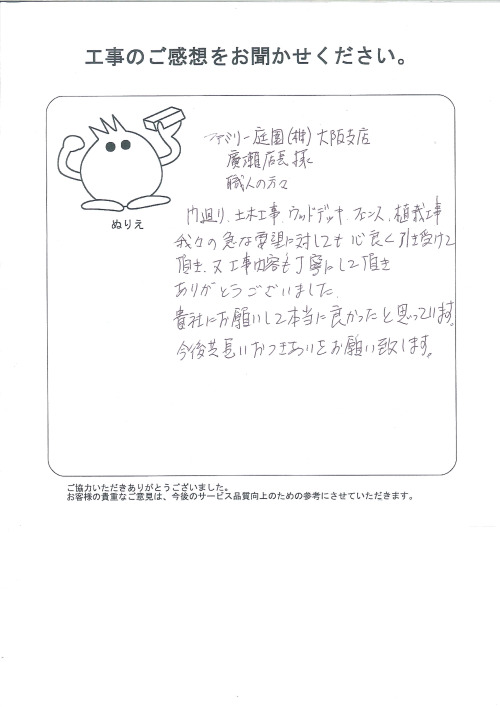 工事のご感想をお聞かせください。
ファミリー庭園(株)大阪支店
廣瀬店長様
職人の方々
ぬりえ
門廻り、土木工事、ウッドデッキ、フェンス、植栽工事
我々の急な要望に対しても心良く引き受けて
頂き、又工事内容も丁寧にして頂き
ありがとうございました。
貴社にお願いして本当に良かったと思っています。
今後共長いおつきあいをお願い致します。
ご協力いただきありがとうございました。
お客様の貴重なご意見は、今後のサービス品質向上のための参考にさせていただきます。